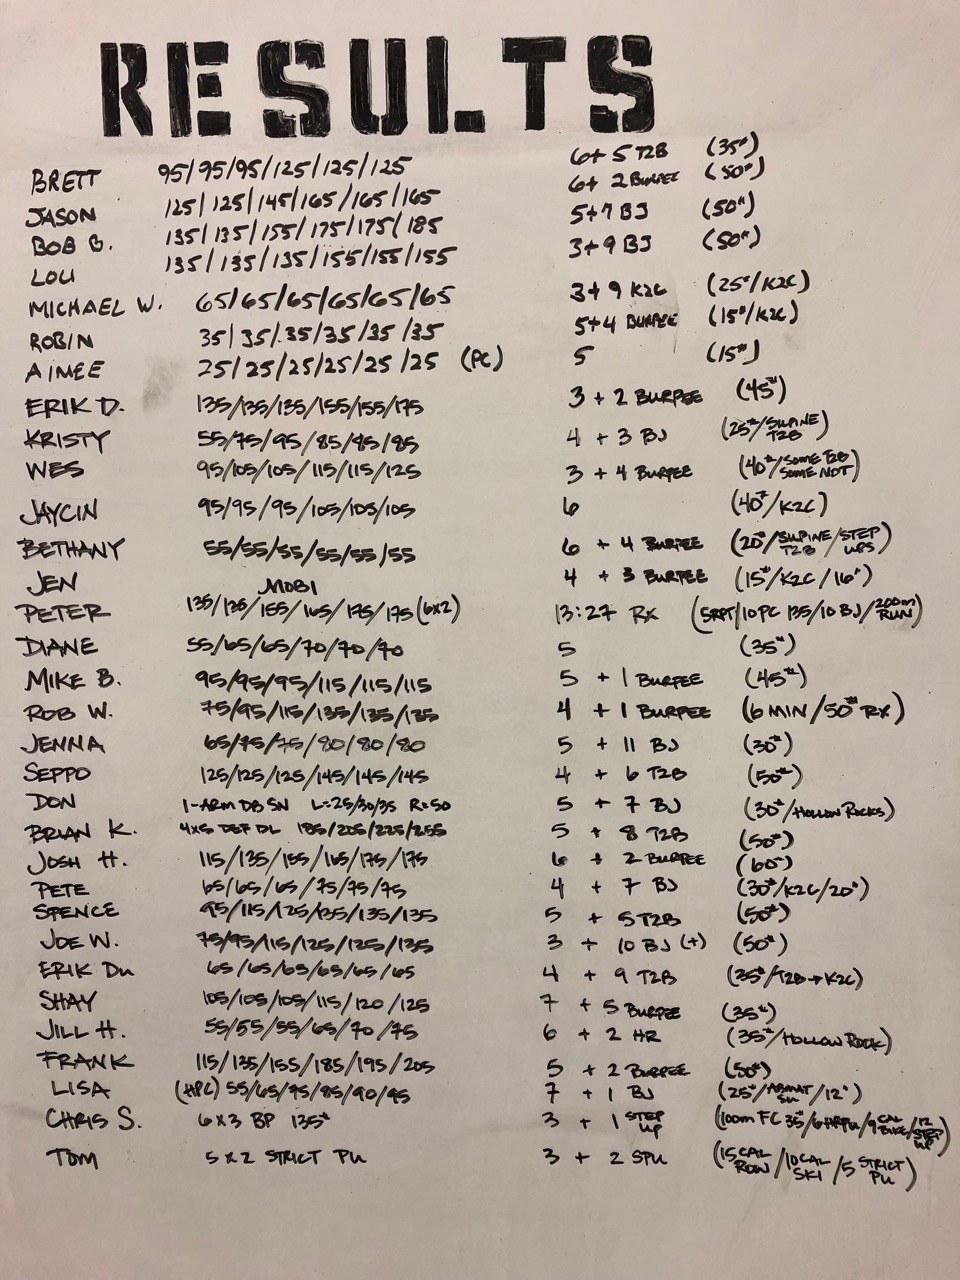 RESULTS
BRETT 95/95/95/125/125/125 6+ 5 T2B (35#)
JASON 125/125/145/165/165/165 6+ 2 BURPEE (50#)
BOB G. 135/135/155/175/175/185 5+7 BJ (50#)
LOU 135/135/135/155/155/155 3+9 BJ (50#)
MICHAEL W. 65/65/65/65/65/65 3+9 K2C (25#/K2C)
ROBIN 35/35/35/35/35/35 5+4 BURPEE (15#/K2C)
AIMEE 25/25/25/25/25/25 (PC) 5 (15#)
ERIK D. 135/135/135/155/155/175 3 + 2 BURPEE (45#)
KRISTY 55/75/95/85/85/85 4 + 3 BJ (25#/SUPINE T2B)
WES 95/105/105/115/115/125 3 + 4 BURPEE (40#/SOME T2B SOME NOT)
JAYCIN 95/95/95/105/105/105 6 (40#/K2C)
BETHANY 55/55/55/55/55/55 6 + 4 BURPEE (20#/SUPINE T2B/STEP UPS)
JEN MOBI 4 + 3 BURPEE (15#/K2C/16")
PETER 135/135/155/165/175/175 (6x2) 13:27 RX (5RFT/10 PC 135/10 BJ/200m RUN)
DIANE 55/65/65/70/70/70 5 (35#)
MIKE B. 95/95/95/115/115/115 5 + 1 BURPEE (45#)
ROB W. 75/95/115/135/135/135 4 + 1 BURPEE (6 MIN/50# RX)
JENNA 65/75/75/80/80/80 5 + 11 BJ (30#)
SEPPO 125/125/125/145/145/145 4 + 6 T2B (50#)
DON 1-ARM DB SN L=25/30/35 R=50 5 + 7 BJ (30#/HOLLOW ROCKS)
BRIAN K. 4x5 DEF DL 185/205/225/255 5 + 8 T2B (50#)
JOSH H. 115/135/155/165/175/175 6 + 2 BURPEE (60#)
PETE 65/65/65/75/75/75 4 + 7 BJ (30#/K2C/20")
SPENCE 95/115/125/135/135/135 5 + 5 T2B (50#)
JOE W. 75/95/115/125/125/135 3 + 10 BJ (+) (50#)
ERIK DU 65/65/65/65/65/65 4 + 9 T2B (35#/T2B→K2C)
SHAY 105/105/105/115/120/125 7 + 5 BURPEE (35#)
JILL H. 55/55/55/65/70/75 6 + 2 HR (35#/HOLLOW ROCK)
FRANK 115/135/155/185/195/205 5 + 2 BURPEE (50#)
LISA (HPC) 55/65/75/85/90/95 7 + 1 BJ (25#/ABMAT SU/12")
CHRIS S. 6x3 BP 135# 3 + 1 STEP UP (100m FC 35#/6 HRPU/9 CAL BIKE/12 STEP UP)
TOM 5x2 STRICT PU 3 + 2 SPU (15 CAL ROW/10 CAL SKI/5 STRICT PU)